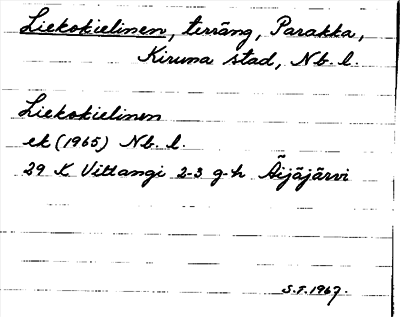 Liekokielinen, terräng, Parakka,
Kiruna stad, Nb. l.
Liekokielinen
ek (1965) Nb. l.
29 K Vittangi 2-3 g-h Äijäjärvi
S.F. 1967.